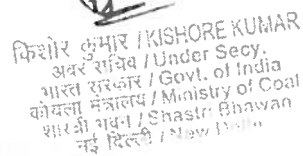 किशोर कुमार / KISHORE KUMAR
अवर सचिव / Under Secy.
भारत सरकार / Govt. of India
कोयला मंत्रालय / Ministry of Coal
शास्त्री भवन / Shastri Bhawan
नई दिल्ली / New Delhi